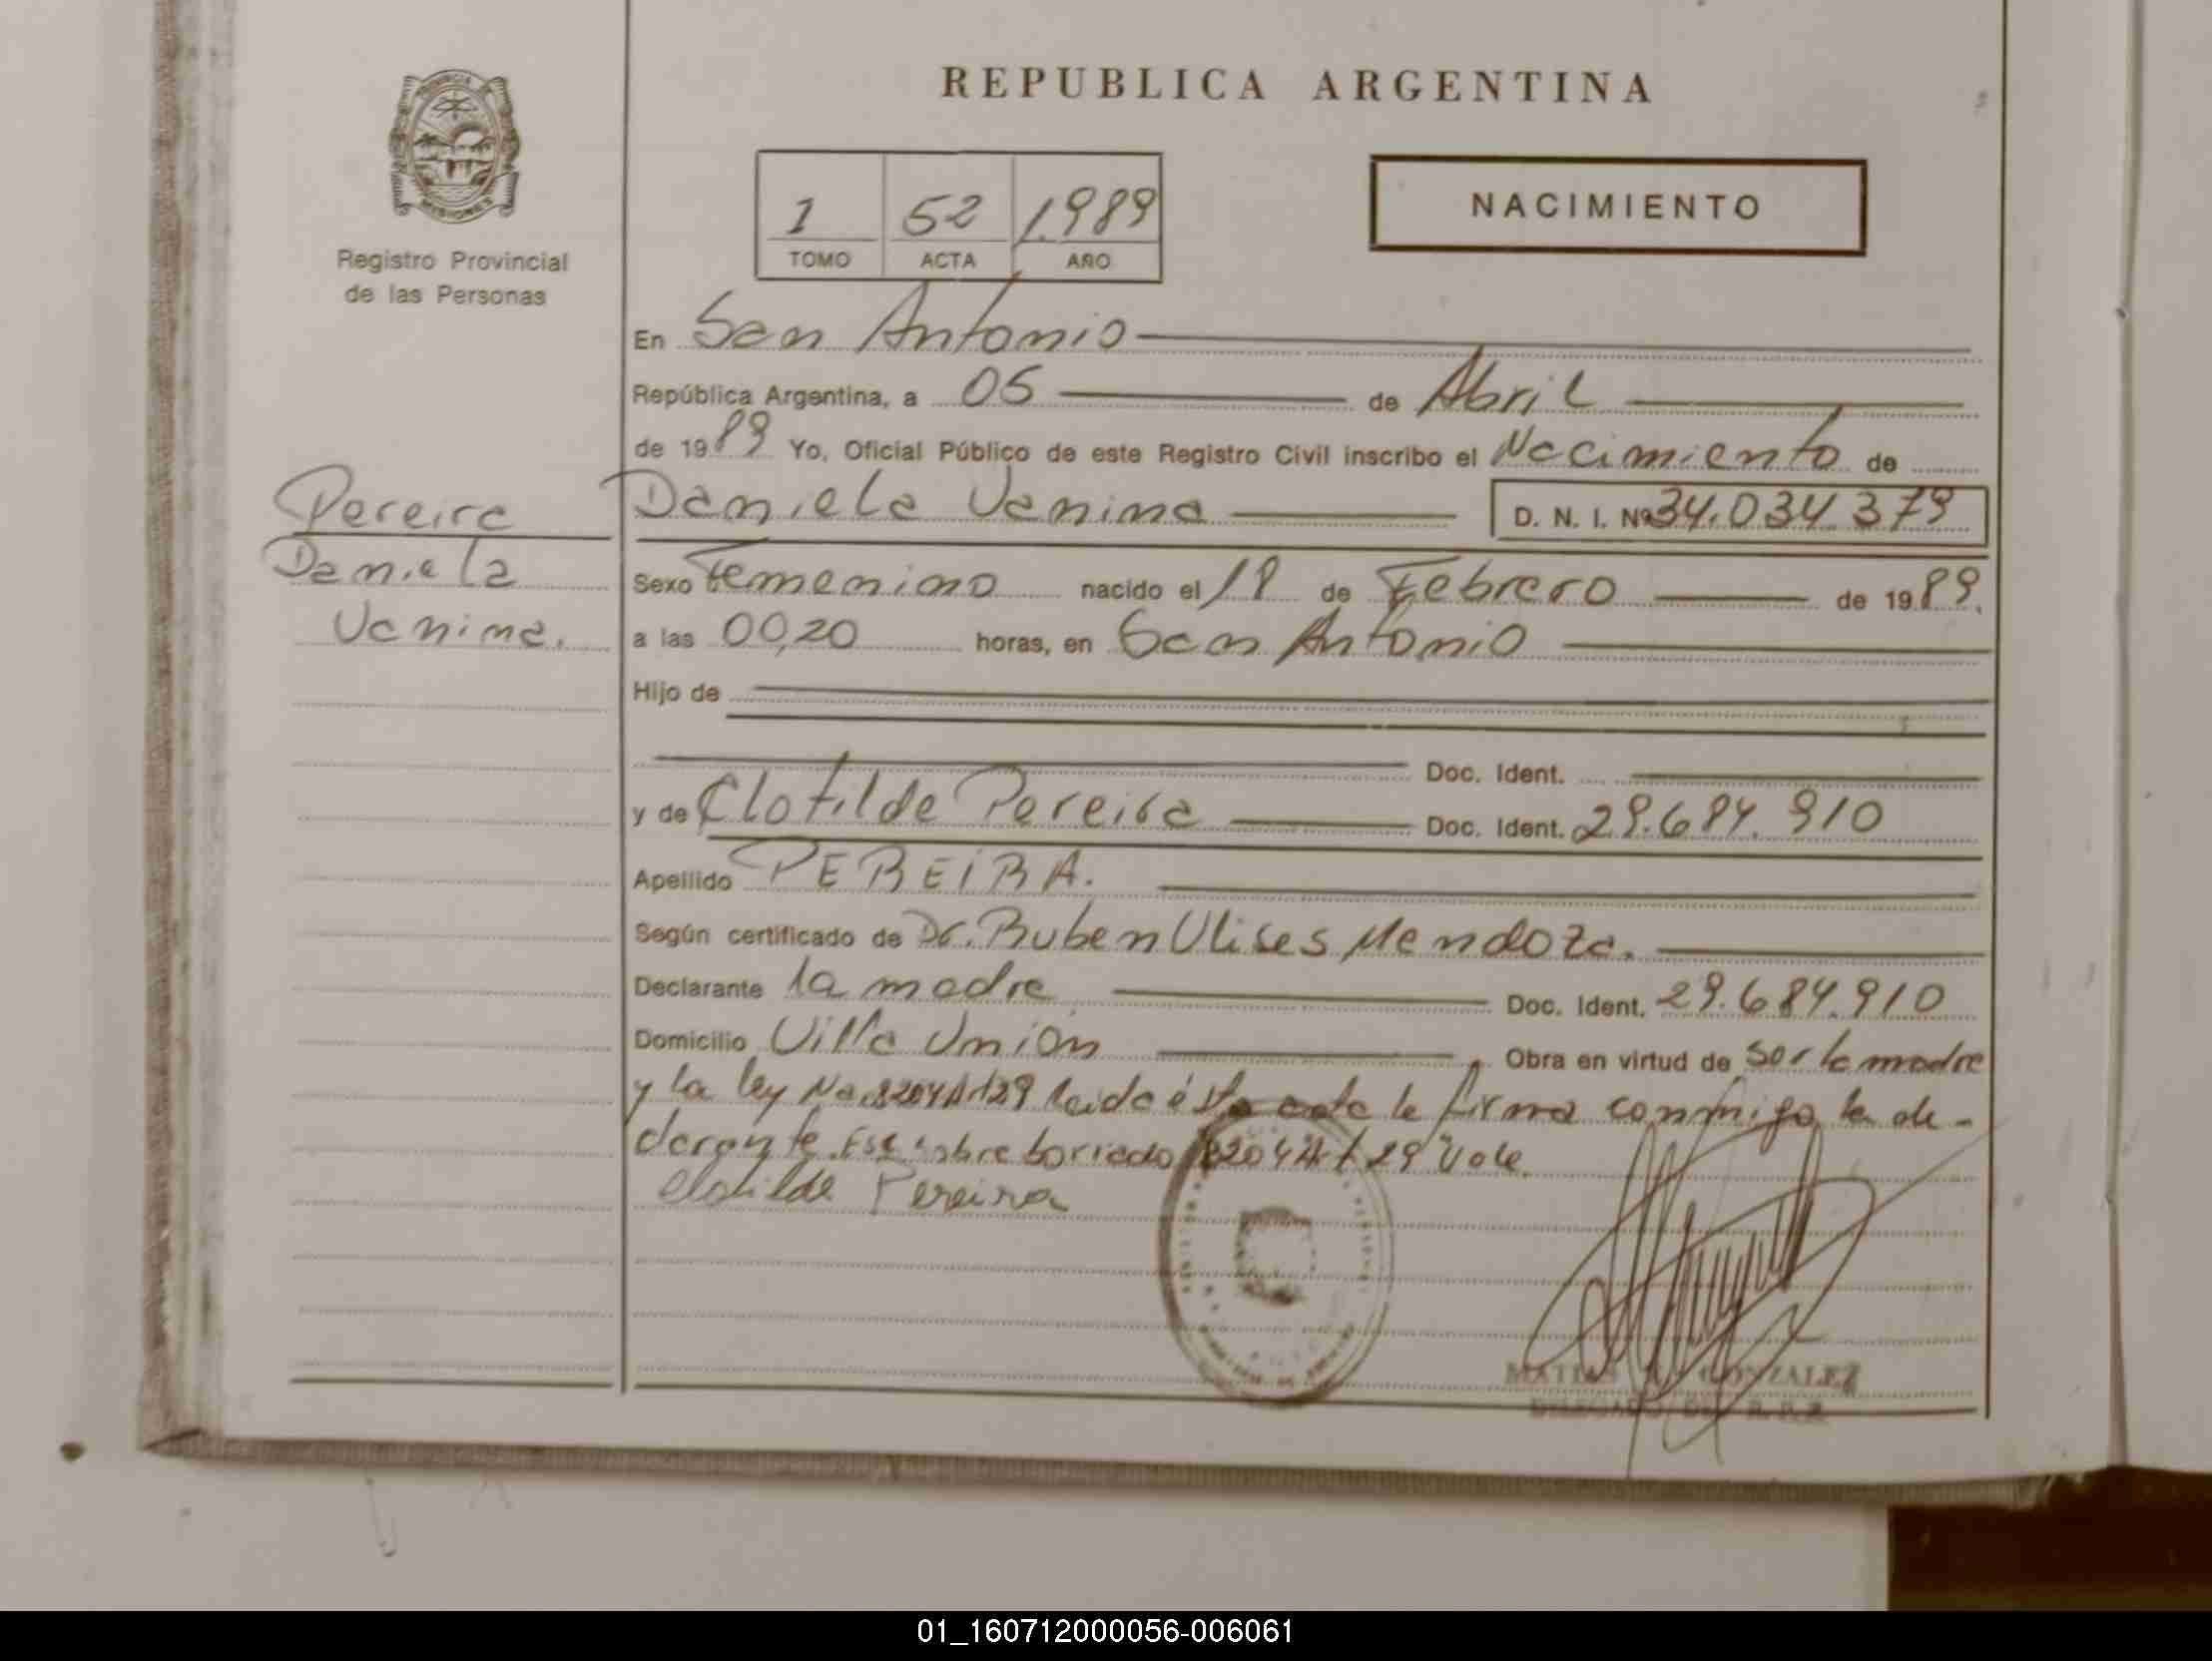 REPUBLICA ARGENTINA
PROVINCIA DE
MISIONES
Registro Provincial
de las Personas
1 52 1.989
TOMO ACTA AÑO
NACIMIENTO
En San Antonio
República Argentina, a 05 de Abril
de 1989 Yo, Oficial Público de este Registro Civil inscribo el Nacimiento de
Pereira
Daniela
Vanina.
Daniela Vanina D. N. I. Nº 34.034.379
Sexo Femenino nacido el 18 de Febrero de 1989.
a las 00,20 horas, en San Antonio
Hijo de
Doc. Ident.
y de Clotilde Pereira Doc. Ident. 29.684.910
Apellido PEREIRA.
Según certificado de Dr. Ruben Ulises Mendoza.
Declarante la madre Doc. Ident. 29.684.910
Domicilio Villa Unión Obra en virtud de ser la madre
y la ley No. 18204 Art 29 leida ésta acta la firma conmigo la de-
clarante. Esc sobre borriado 18204 Art 29 Vale.
Clotilde Pereira
GONZALEZ
DELEGADO DEL R. P. P.
01_160712000056-006061